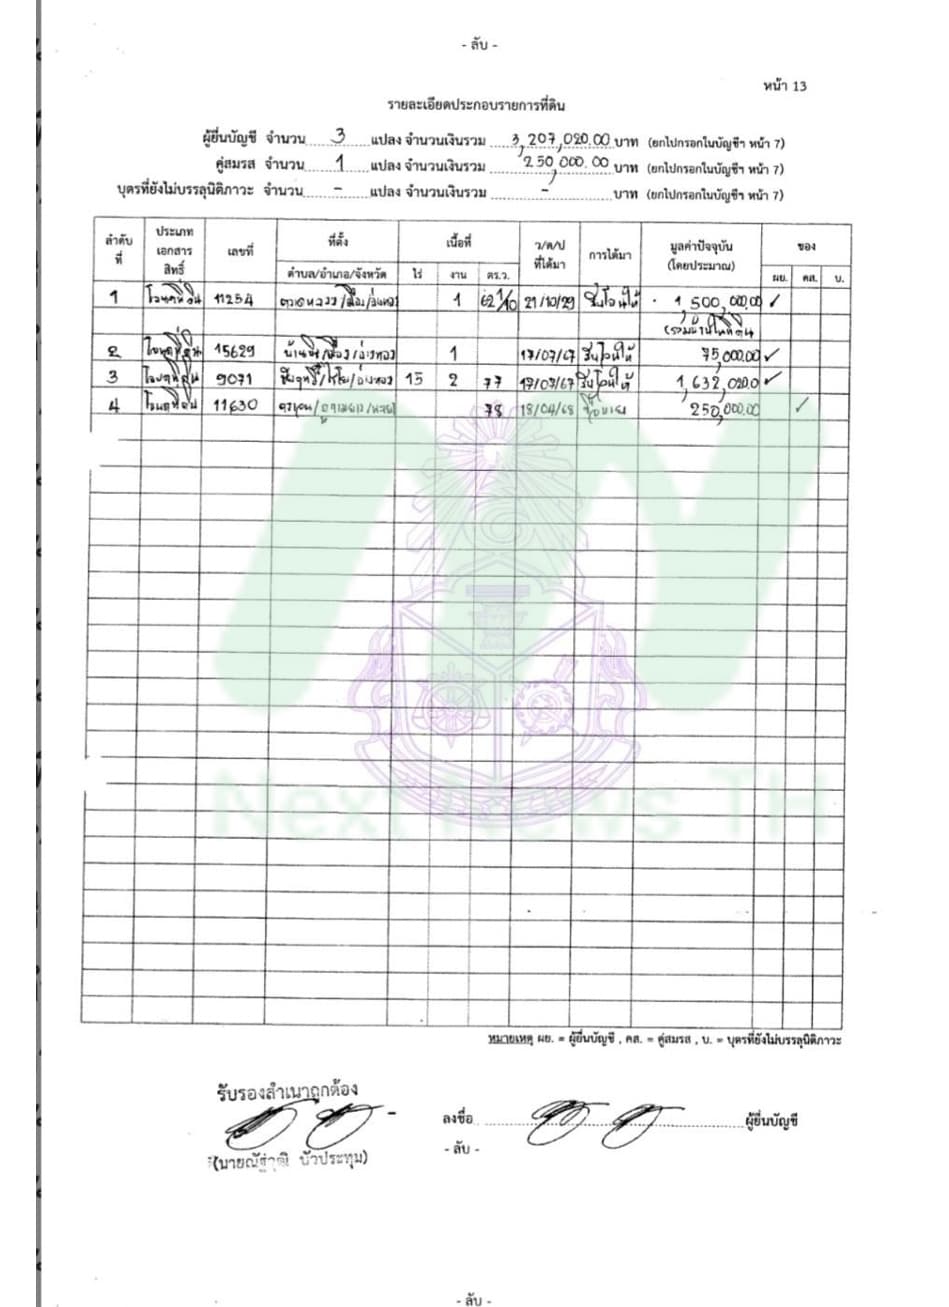 - ลับ -
หน้า 13
รายละเอียดประกอบรายการที่ดิน
ผู้ยื่นบัญชี จำนวน 3 แปลง จำนวนเงินรวม 3,207,020.00 บาท (ยกไปกรอกในบัญชีฯ หน้า 7)
คู่สมรส จำนวน 1 แปลง จำนวนเงินรวม 250,000.00 บาท (ยกไปกรอกในบัญชีฯ หน้า 7)
บุตรที่ยังไม่บรรลุนิติภาวะ จำนวน - แปลง จำนวนเงินรวม - บาท (ยกไปกรอกในบัญชีฯ หน้า 7)
ลำดับที่ ประเภทเอกสารสิทธิ์ เลขที่ ที่ตั้ง เนื้อที่ ว/ด/ป ที่ได้มา การได้มา มูลค่าปัจจุบัน (โดยประมาณ) ของ
ตำบล/อำเภอ/จังหวัด ไร่ งาน ตร.ว. ผย. คส. บ.
1 โฉนดที่ดิน 11254 ตลาดหลวง/เมือง/อ่างทอง 1 62 1/10 21/10/29 ยกให้ 1,500,000.00 ✓
(รวมบ้านในที่ดิน
2 โฉนดที่ดิน 15629 /เมือง/อ่างทอง 1 17/07/67 75,000.00 ✓
3 โฉนดที่ดิน 9071 /ไชโย/อ่างทอง 15 2 77 17/07/67 1,632,020.0 ✓
4 โฉนดที่ดิน 11630 78 18/04/68 ซื้อขาย 250,000.00 ✓
Next News TH
หมายเหตุ ผย. = ผู้ยื่นบัญชี , คส. = คู่สมรส , บ. = บุตรที่ยังไม่บรรลุนิติภาวะ
รับรองสำเนาถูกต้อง
ลงชื่อ ผู้ยื่นบัญชี
(นายณัฐวุฒิ บัวประทุม)
- ลับ -
- ลับ -